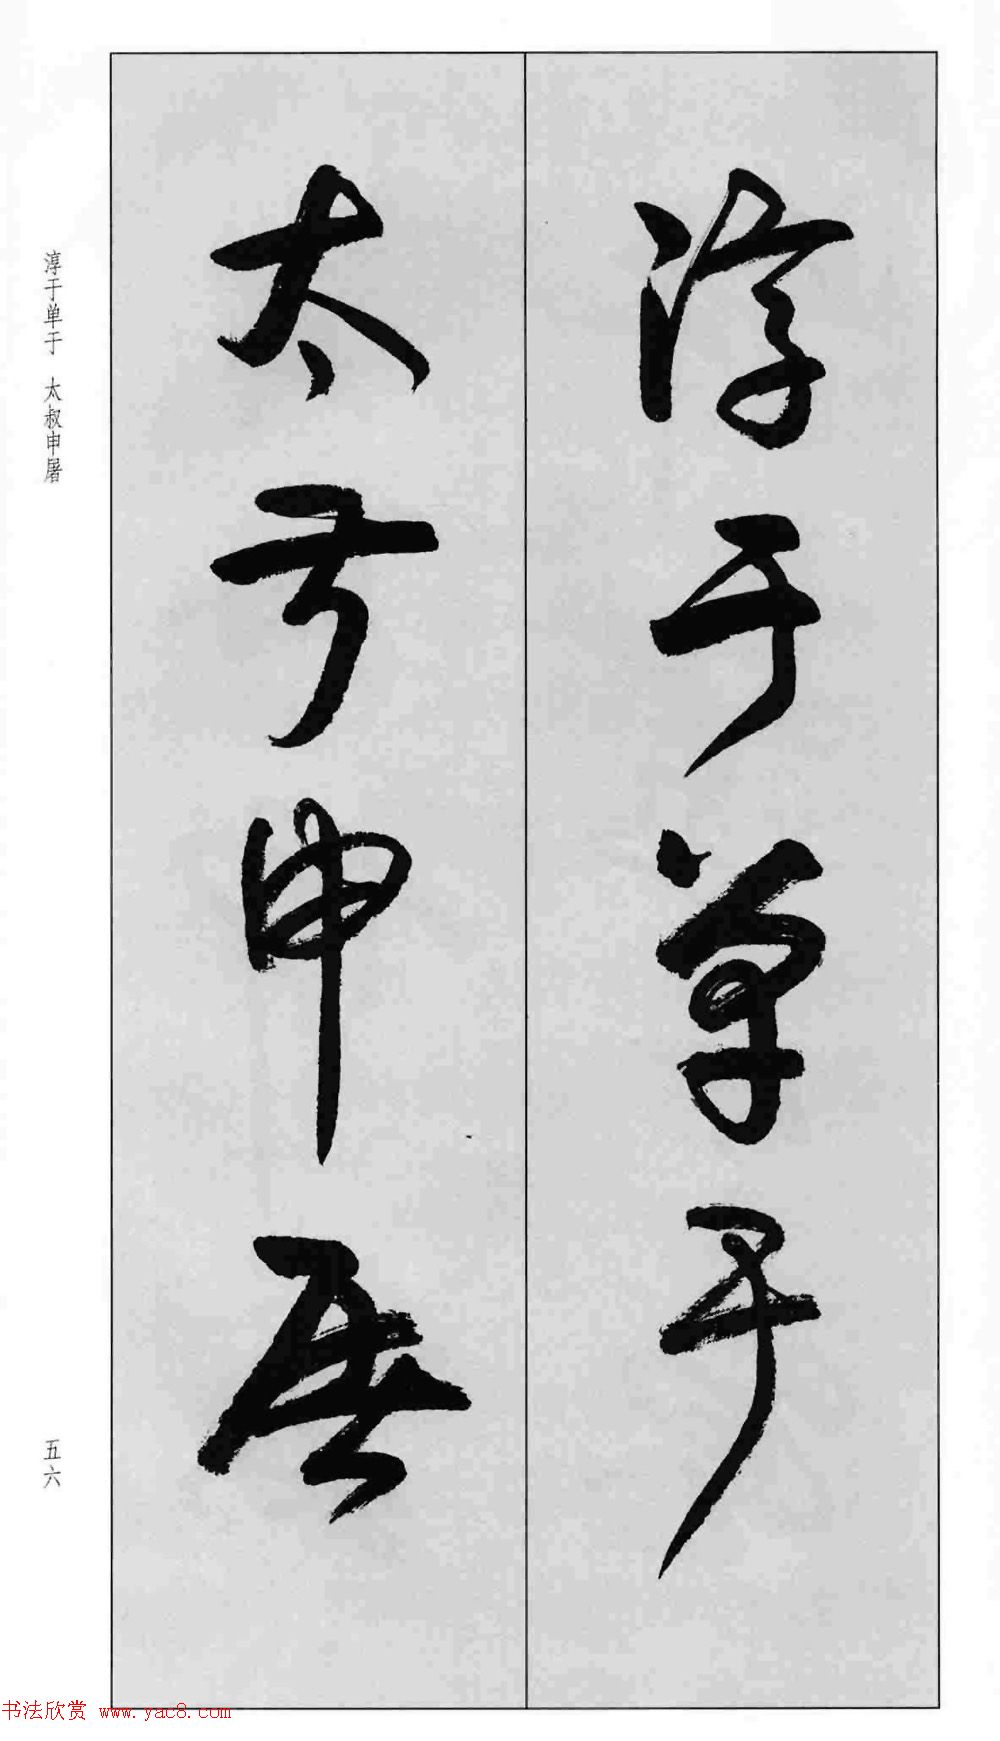 淳于单于
太叔申屠
淳于单于 太叔申屠
五六
书法欣赏 www.yac8.com